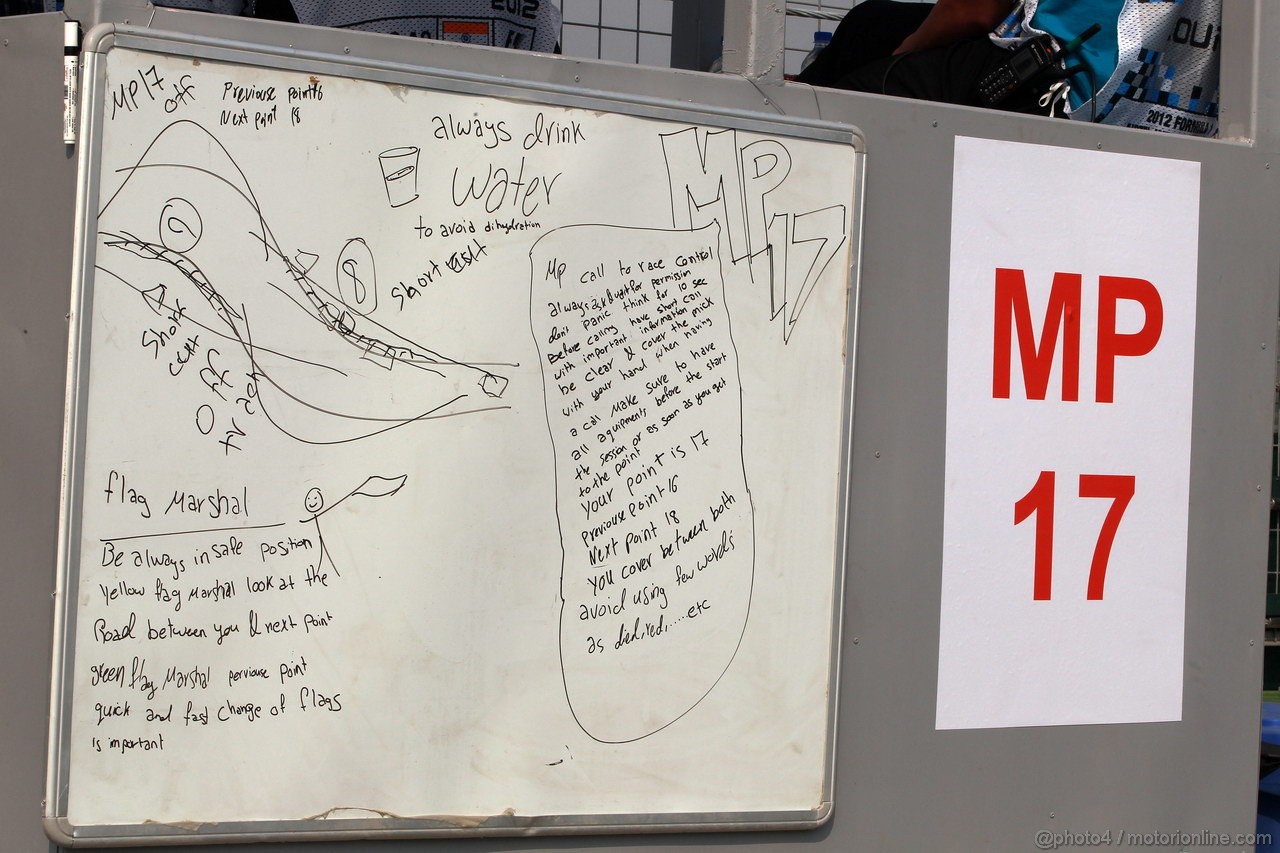 2012
MP17
off
Previouse point 16
Next point 18
always drink
water
to avoid dihydration
short cutt
MP
17
7
8
short
cutt
flag Marshal
Be always in safe position
Yellow flag Marshal look at the
Road between you & next point
green flag Marshal perviouse point
quick and fast change of flags
is important
MP call to race control
always ask & wait for permissin
don't panic think for 10 sec
Before calling, have short call
with important information
be clear & cover the mick
with your hand when having
a call Make sure to have
all aquipments before the start
the session or as soon as you get
to the point
Your point is 17
previouse point 16
Next point 18
you cover between both
avoid using few words
as died, red, ..... etc
MP
17
2012 FORMULA
@photo4 / motorionline.com